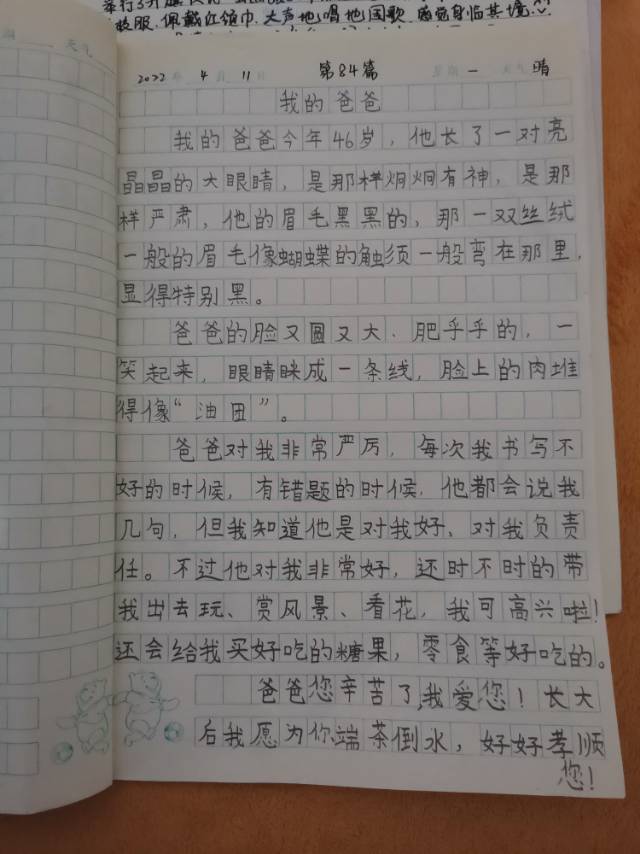 校服.佩戴红领巾.大声地唱地国歌 感觉身临其境
天气
2022年 4月 11日 第84篇 星期一 天气 晴
我的爸爸
我的爸爸今年46岁，他长了一对亮
晶晶的大眼睛，是那样炯炯有神，是那
样严肃，他的眉毛黑黑的，那一双丝绒
一般的眉毛像蝴蝶的触须一般弯在那里，
显得特别黑。
爸爸的脸又圆又大、肥乎乎的，一
笑起来，眼睛眯成一条线，脸上的肉堆
得像“油田”。
爸爸对我非常严厉，每次我书写不
好的时候，有错题的时候，他都会说我
几句，但我知道他是对我好、对我负责
任。不过他对我非常好，还时不时的带
我出去玩、赏风景、看花，我可高兴啦！
还会给我买好吃的糖果，零食等好吃的。
爸爸您辛苦了，我爱您！长大
后我愿为你端茶倒水，好好孝顺
您！